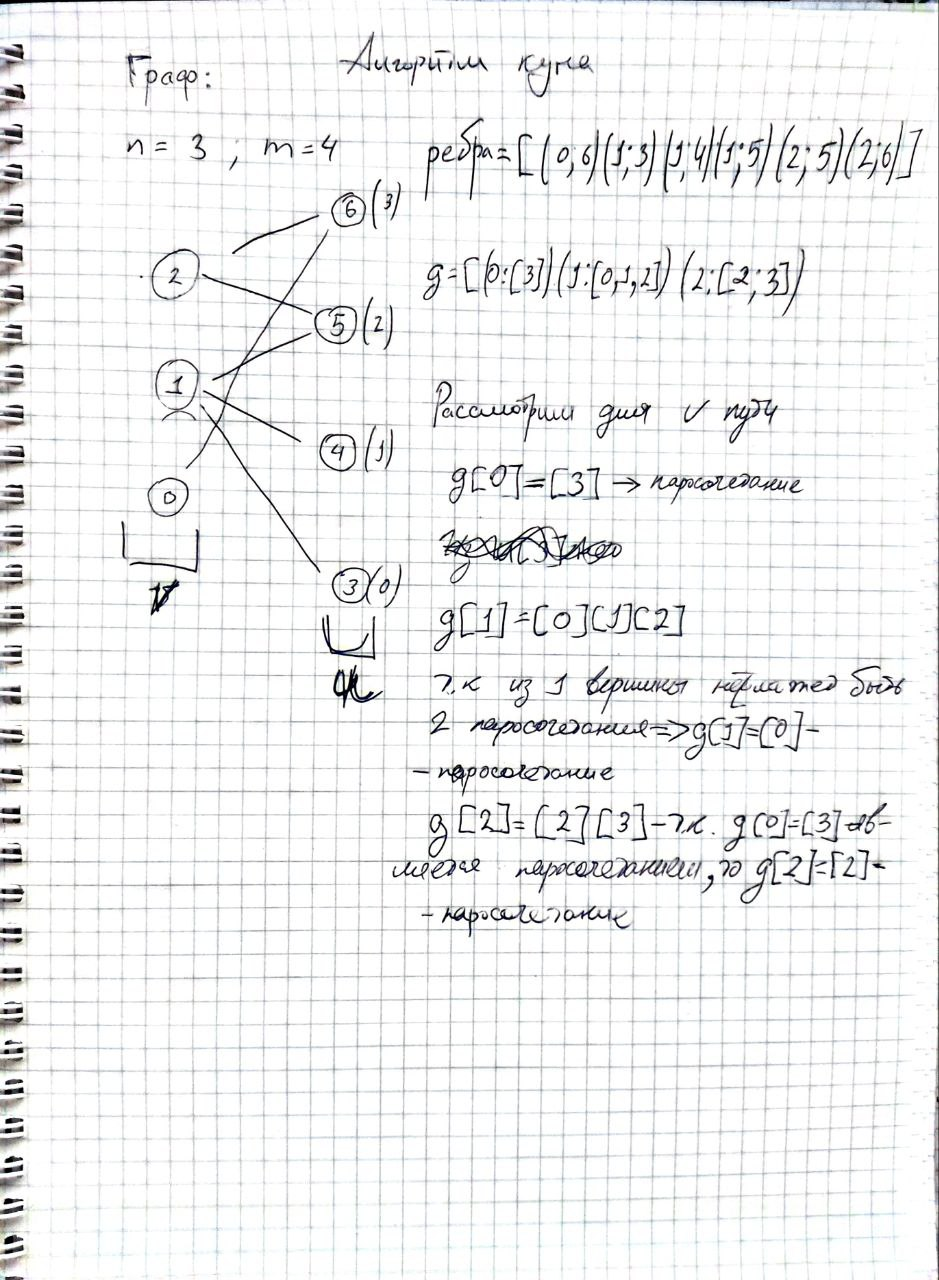 Алгоритм куна
Граф:
n = 3 ; m = 4
ребра = [(0;6)(1;3)(1;4)(1;5)(2;5)(2;6)]
6 (3)
2
g=[(0:[3])(1:[0,1,2])(2:[2;3])
5 (2)
1
Рассмотрим для v пути
4 (1)
g[0]=[3] → паросочетание
0
3 (0)
g[1]=[0][1][2]
т.к из 1 вершины не может быть
2 паросочетания => g[1]=[0] -
- паросочетание
g[2]=[2][3] - т.к. g[0]=[3] яв-
ляется паросочетанием, то g[2]=[2] -
- паросочетание